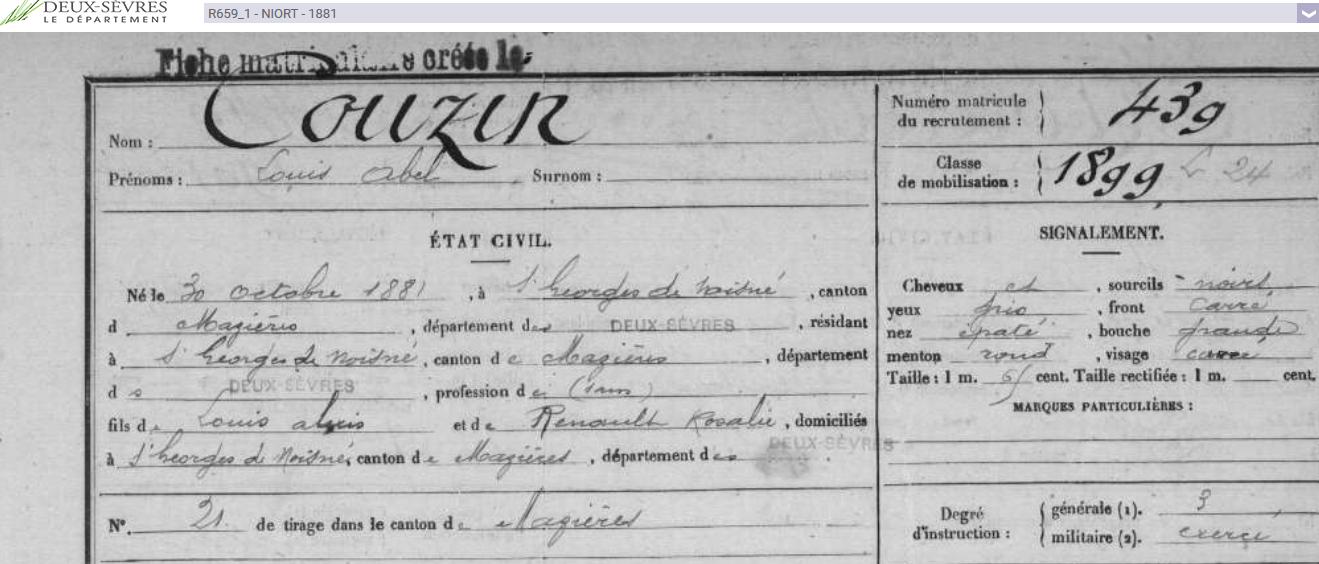 DEUX-SÈVRES
LE DÉPARTEMENT
R659_1 - NIORT - 1881
Fiche matriculaire créée le
Nom : Couzin
Prénoms : Louis Abel Surnom :
Numéro matricule du recrutement : 439
Classe de mobilisation : 1899 24
ÉTAT CIVIL.
Né le 30 octobre 1881, à St Georges de Noisné, canton
d Mazières, département des DEUX-SÈVRES, résidant
à St Georges de Noisné, canton de Mazières, département
ds DEUX-SÈVRES, profession de (sans)
fils de Louis alexis et de Renault Rosalie, domiciliés
à St Georges de Noisné, canton de Mazières, département des DEUX-SÈVRES
No. 21 de tirage dans le canton de Mazières
SIGNALEMENT.
Cheveux et, sourcils noirs,
yeux gris, front Carré
nez épaté, bouche grande
menton rond, visage carré
Taille : 1 m. cent. Taille rectifiée : 1 m. cent.
MARQUES PARTICULIÈRES :
Degré d'instruction : générale (1). 3
militaire (2). exercé